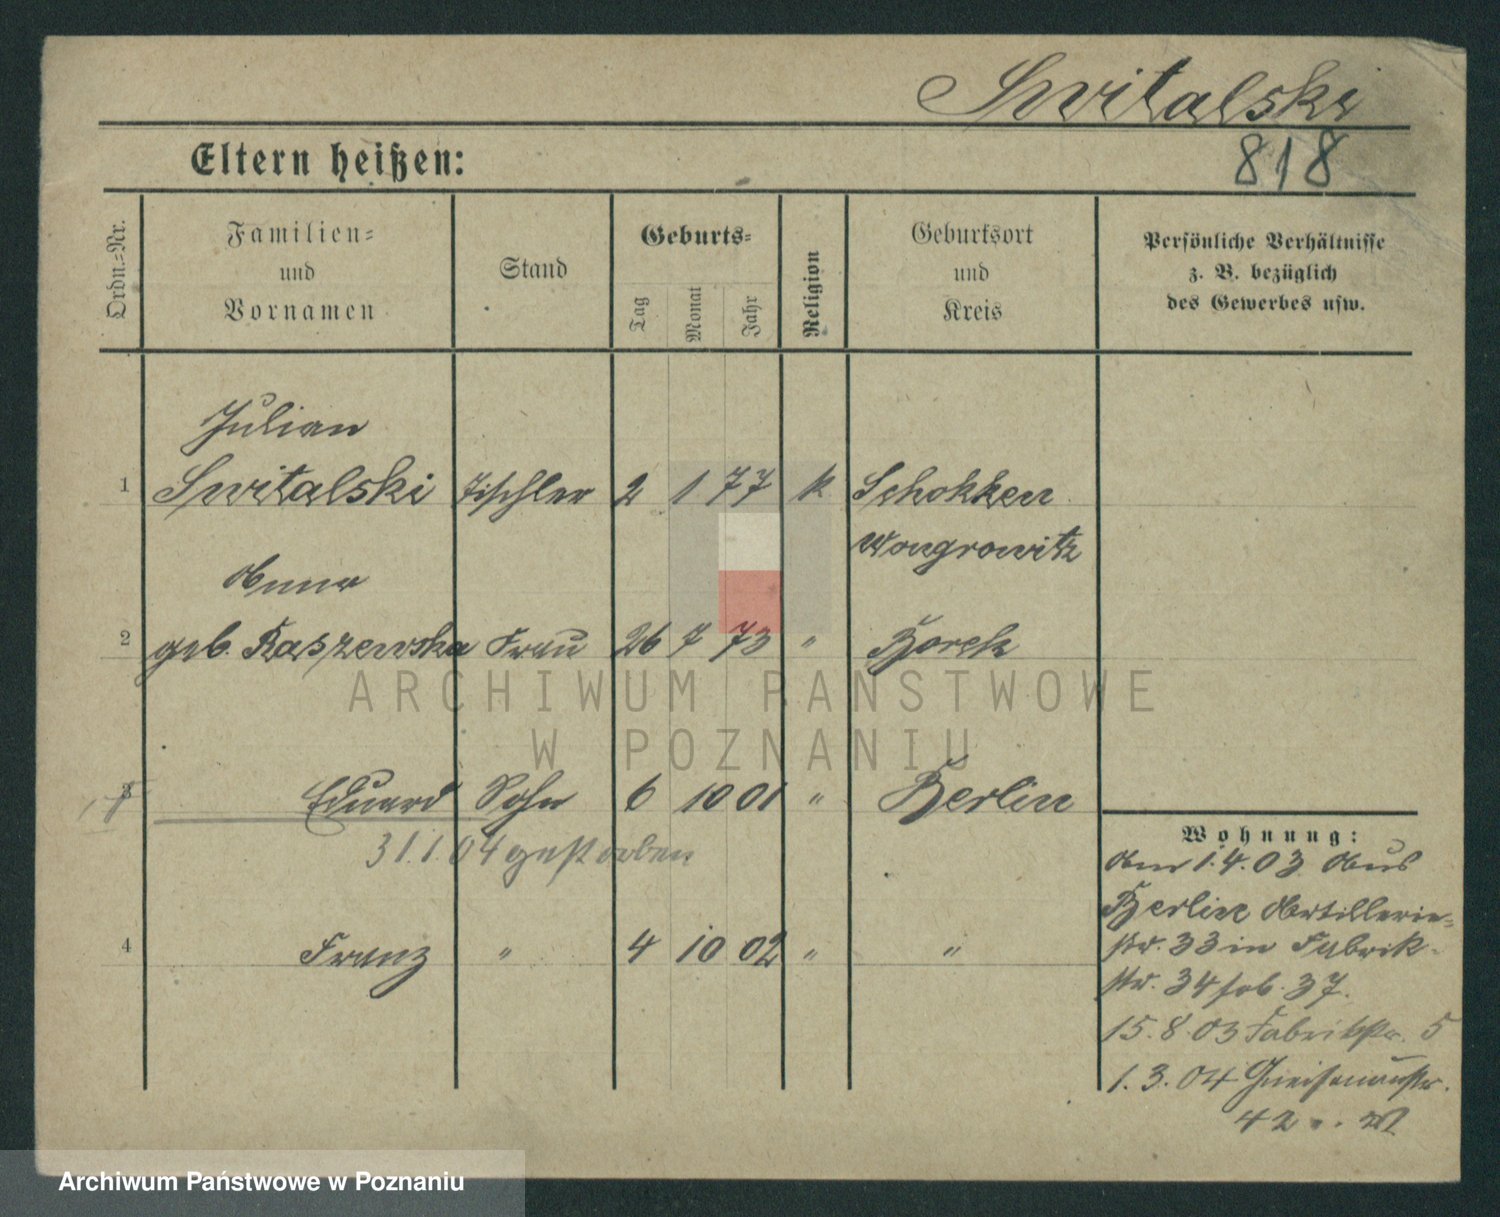 Switalski
818
Eltern heißen:
Ordn.-Nr.
Familien-
und
Vornamen
Stand
Geburts-
Tag
Monat
Jahr
Religion
Geburtsort
und
Kreis
Persönliche Verhältnisse
z. B. bezüglich
des Gewerbes usw.
Julian
1 Switalski Tischler 2 1 77 k Schokken
Wongrowitz
Anna
2 geb. Raszewska Frau 26 7 73 " Borek
3 Eduard Sohn 6 10 01 " Berlin
31.1.04 gestorben
4 Franz " 4 10 02 " "
Wohnung:
Am 1.4.03 Aus
Berlin Artillerie-
str. 33 in Fabrik-
str. 34 37.
15.8.03 Fabrikstr. 5
1.3.04 Gneisenaustr.
42
ARCHIWUM PAŃSTWOWE
W POZNANIU
Archiwum Państwowe w Poznaniu